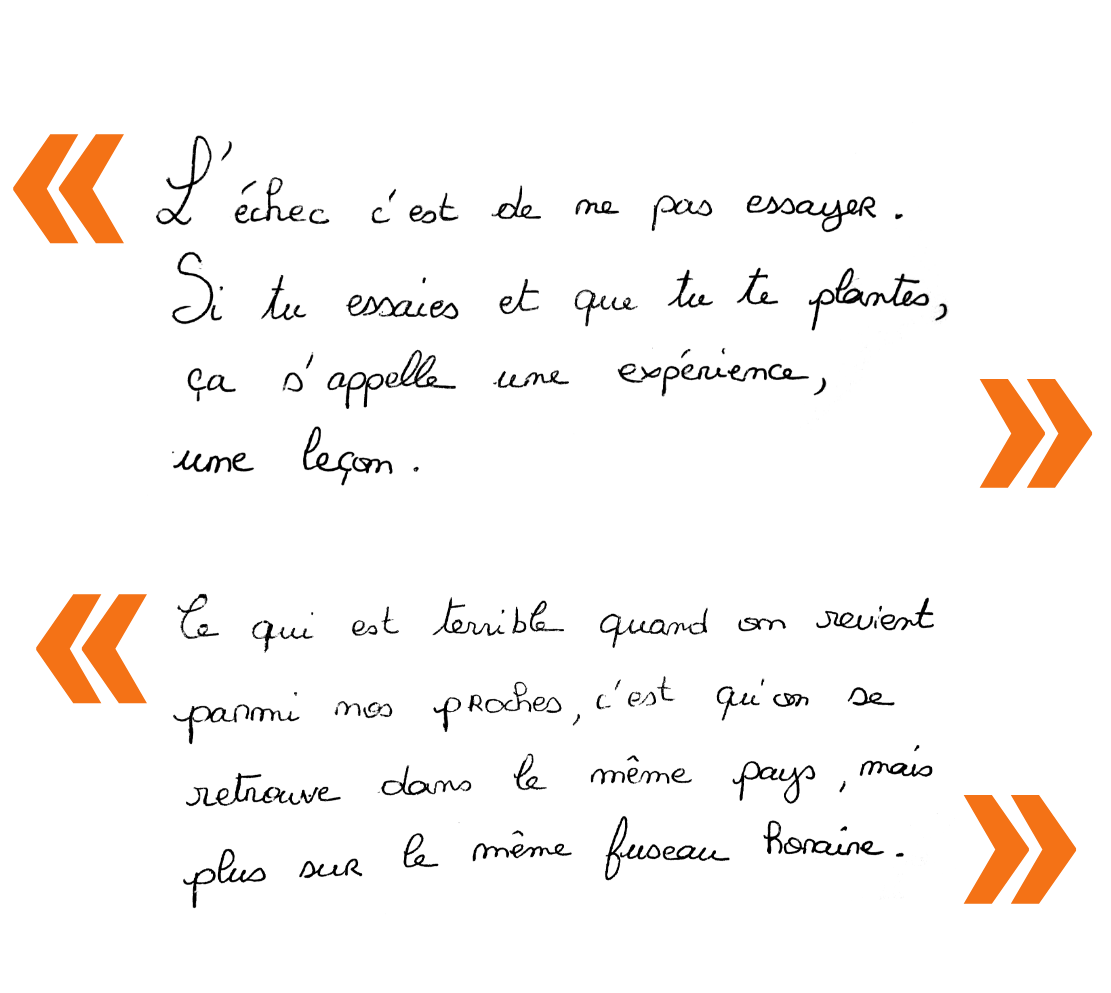 « L'échec c'est de ne pas essayer.
Si tu essaies et que tu te plantes,
ça s'appelle une expérience,
une leçon. »
« Ce qui est terrible quand on revient
parmi nos proches, c'est qu'on se
retrouve dans le même pays, mais
plus sur le même fuseau horaire. »